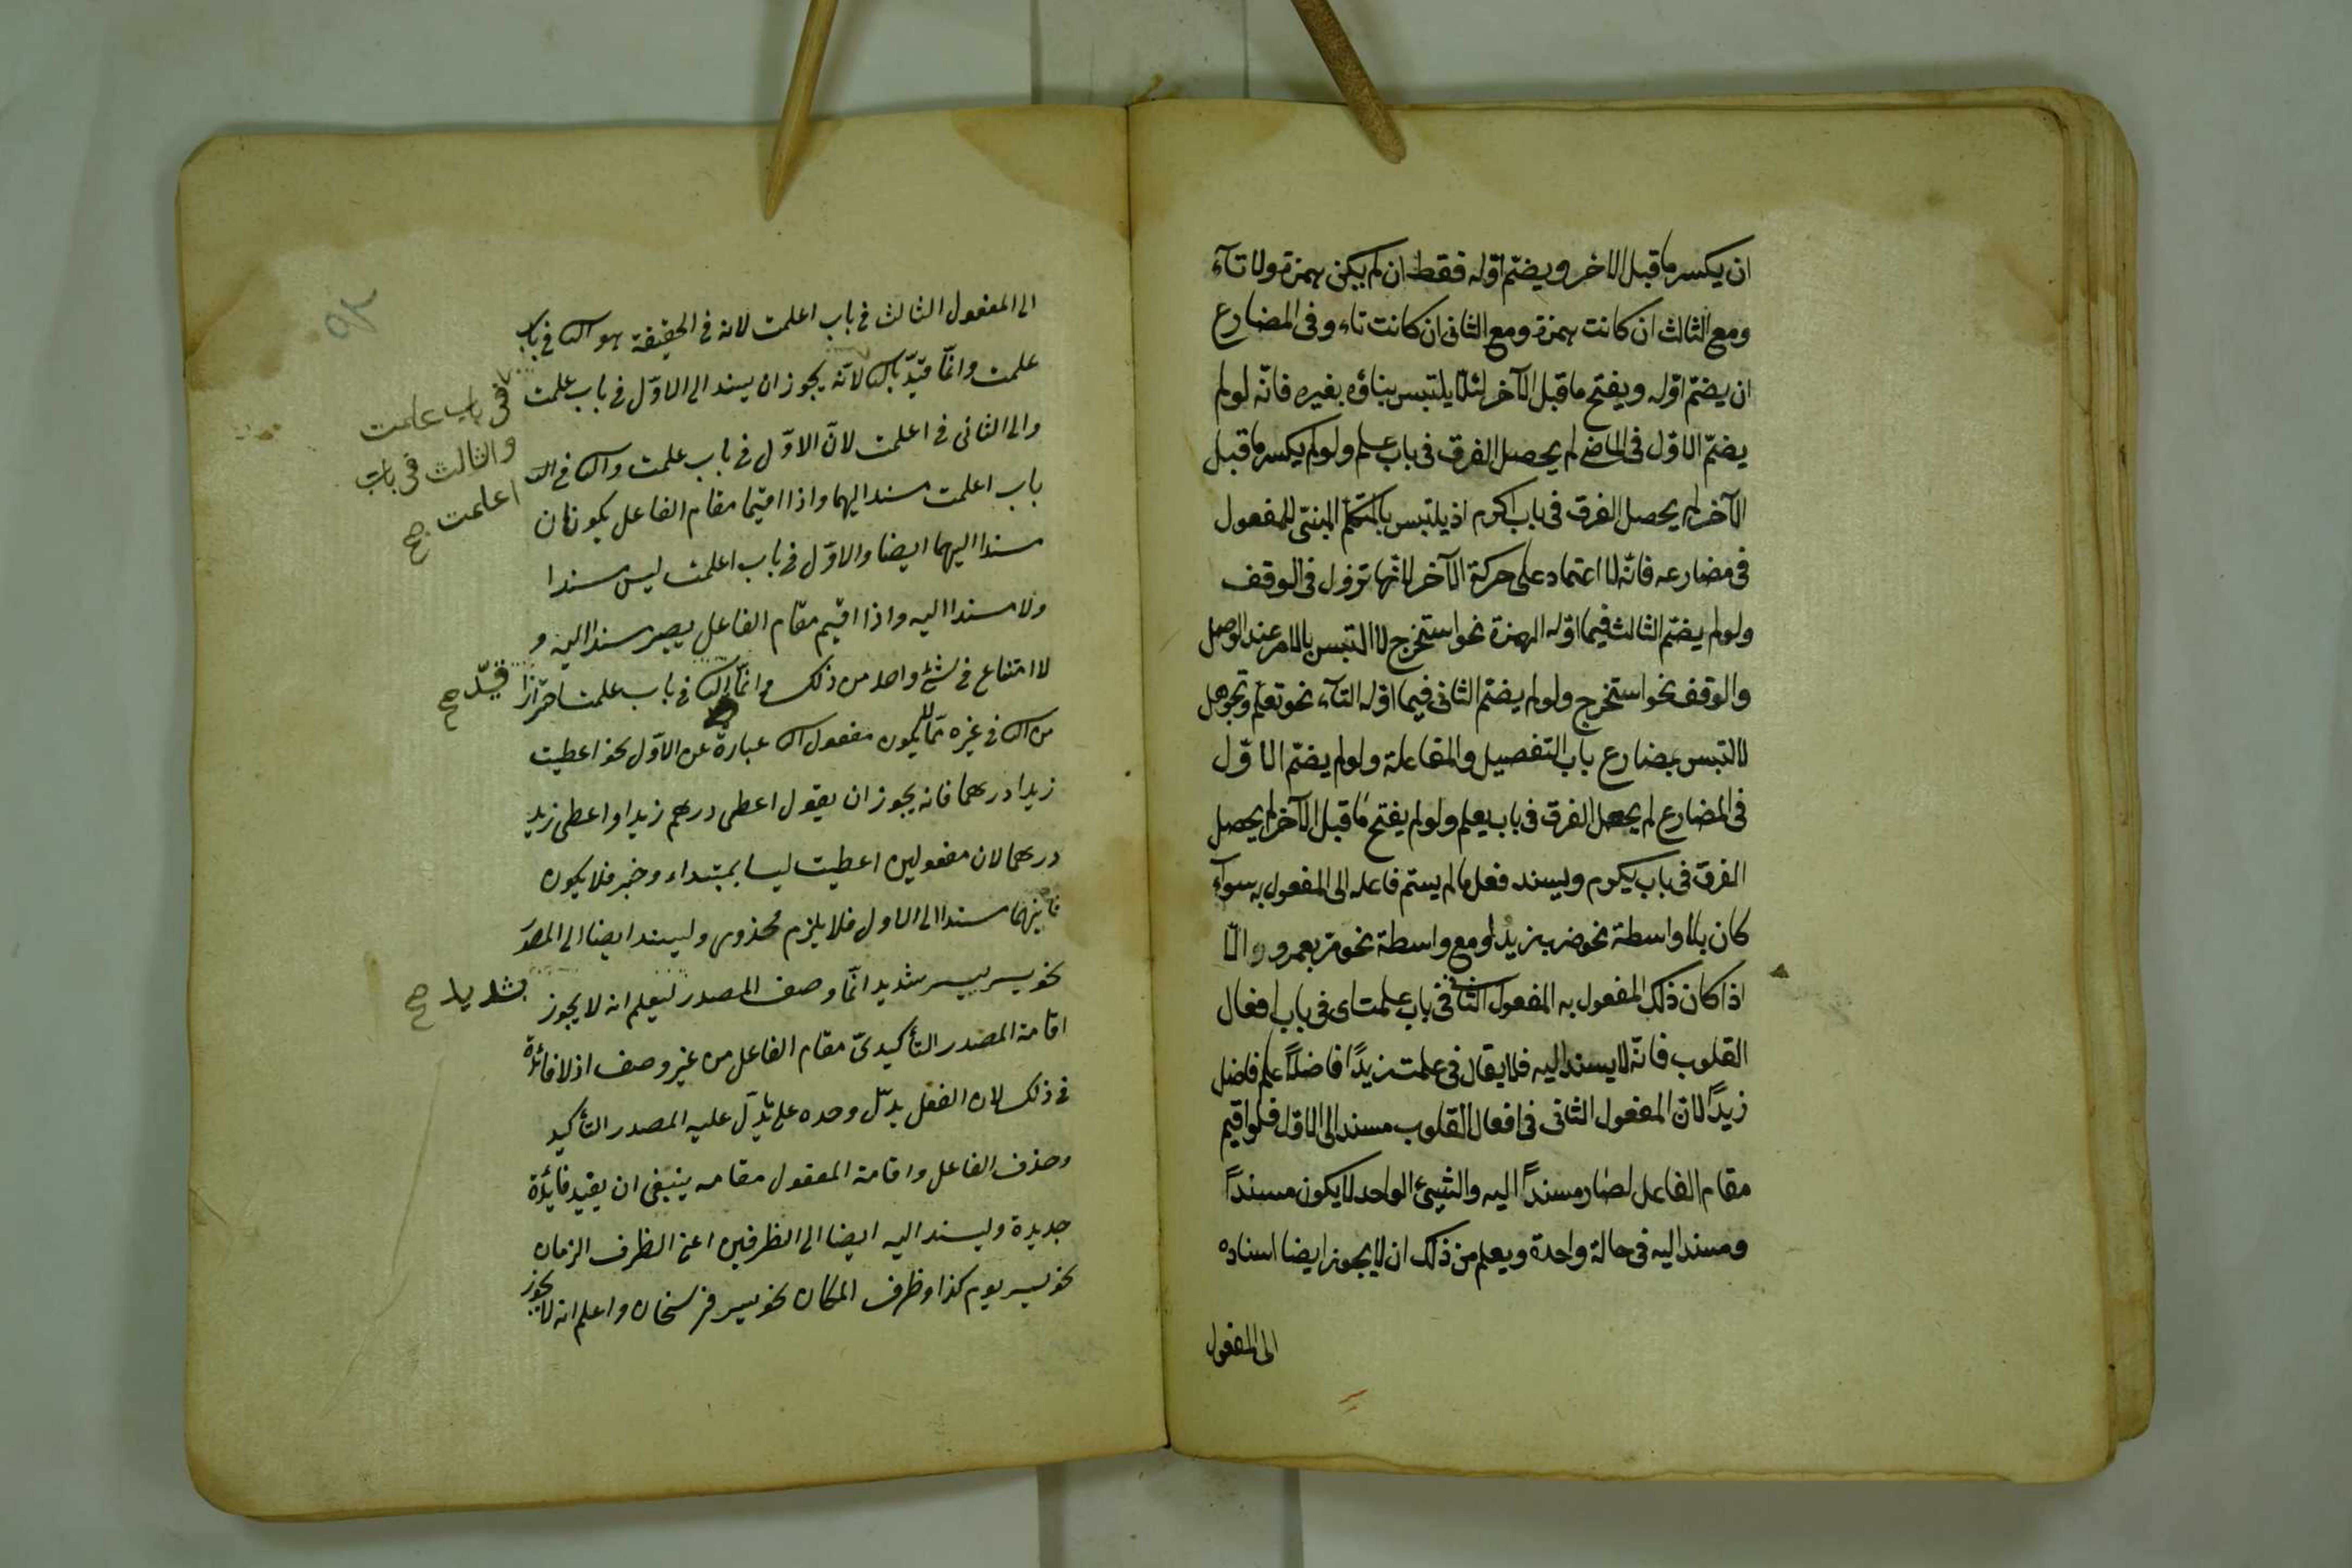 ان يكسر ما قبل الاخر ويضمّ اوّله فقط ان لم يكن همزة ولا تآء
ومع الثالث ان كانت همزة ومع الثانى ان كانت تاء وفى المضارع
ان يضمّ اوّله ويفتح ما قبل الآخر لئلّا يلتبس بناؤه بغيره فانّه لو لم
يضمّ الاوّل فى الماضى لم يحصل الفرق فى باب علم ولو لم يكسر ما قبل
الآخر لم يحصل الفرق فى باب اكرم اذ يلتبس بالمتكلّم المبنىّ للمفعول
فى مضارعه فانّه لا اعتماد على حركة الآخر لانّها تزول فى الوقف
ولو لم يضمّ الثالث فيما اوّله الهمزة نحو استخرج لالتبس بالامر عند الوصل
والوقف نحو استخرج ولو لم يضمّ الثانى فيما اوّله التآء نحو تعلّم وتجوهل
لالتبس بمضارع باب التفصيل والمفاعلة ولو لم يضمّ الاوّل
فى المضارع لم يحصل الفرق فى باب يعلم ولو لم يفتح ما قبل الآخر لم يحصل
الفرق فى باب يكرم ويسند فعل ما لم يسمّ فاعله الى المفعول به سوآء
كان بلا واسطة نحو ضرب زيد او مع واسطة نحو مرّ بعمرو والّا
اذا كان ذلك المفعول به المفعول الثانى فى باب علمت اى فى باب افعال
القلوب فانّه لا يسند اليه فلا يقال فى علمت زيدًا فاضلًا علم فاضل
زيدًا لانّ المفعول الثانى فى افعال القلوب مسند الى الاوّل فلو اقيم
مقام الفاعل لصار مسندًا اليه والشيئ الواحد لا يكون مسندًا
ومسندا اليه فى حالة واحدة ويعلم من ذلك ان لا يجوز ايضا اسناده
الى المفعول
الى المفعول الثالث فى باب اعلمت لانه فى الحقيقة هو الثا فى باب
علمت وانّما قيّد بالثا لانّه يجوز ان يسند الى الاوّل فى باب علمت
والى الثانى فى اعلمت لانّ الاوّل فى باب علمت والثا فى
باب اعلمت مسند اليهما واذا اقيما مقام الفاعل يكونان
مسندا اليهما ايضا والاوّل فى باب اعلمت ليس مسندا
ولا مسندا اليه واذا اقيم مقام الفاعل يصير مسندا اليه و
لا امتناع فى شئ واحد من ذلك وانّما الثا فى باب علمت احترازا
من الثا فى غيره ممّا يكون مفعول الثا عبارة عن الاوّل نحو اعطيت
زيدا درهما فانه يجوز ان يقول اعطى درهم زيدا واعطى زيد
درهما لان مفعولين اعطيت ليسا بمبتداء وخبر فلا يكون
ثانيهما مسندا الى الاول فلا يلزم محذور ويسند ايضا الى المصدر
نحو يسر سير شديد انّما وصف المصدر ليعلم انه لا يجوز
اقامة المصدر التأكيدىّ مقام الفاعل من غير وصف اذ لا فائدة
فى ذلك لان الفعل يدلّ وحده على ما يدلّ عليه المصدر التأكيد
وحذف الفاعل واقامة المفعول مقامه ينبغى ان يفيد فايدة
جديدة ويسند اليه ايضا الى الظرفين اعنى الظرف الزمان
نحو يسير يوم كذا وظرف المكان نحو يسير فرسخان واعلم انه لا يجوز
فى باب علمت
والثالث فى باب
اعلمت صح
قيّد صح
شديد صح